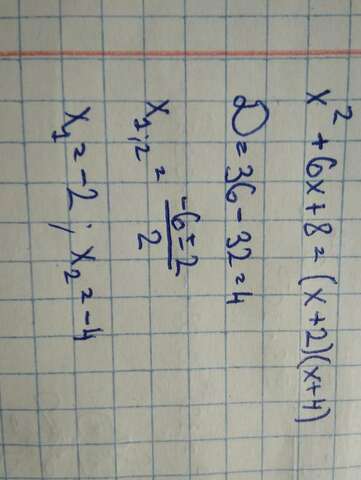 x² + 6x + 8 = (x + 2)(x + 4)
D = 36 - 32 = 4
x₁,₂ = (-6 ± 2)/2
x₁ = -2; x₂ = -4